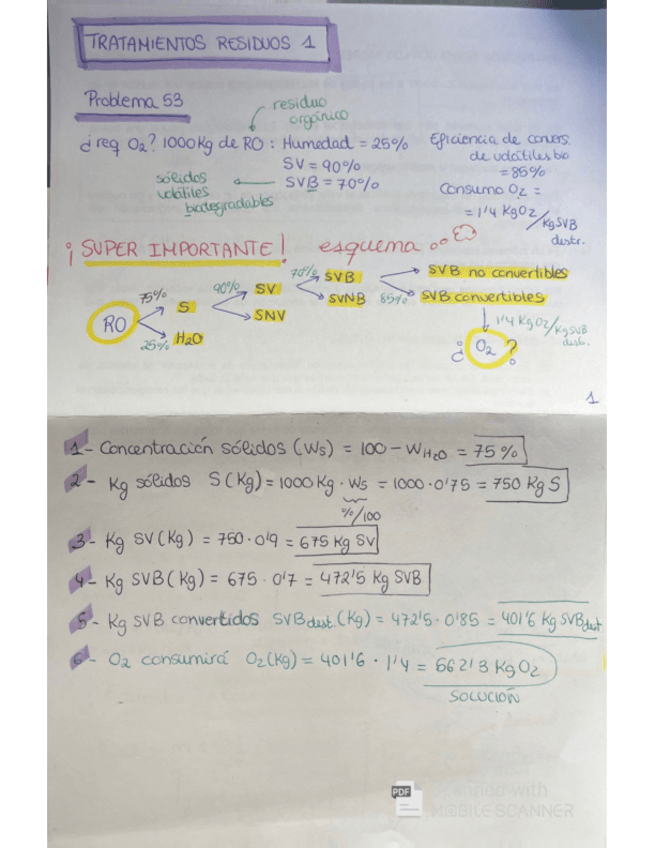 TRATAMIENTOS RESIDUOS 1
Problema 53
residuo
orgánico
¿req O2? 1000 Kg de RO: Humedad = 25%
SV = 90%
SVB = 70%
sólidos
volátiles
biodegradables
Eficiencia de convers.
de volátiles bio
= 85%
Consumo O2 =
= 1'4 KgO2/KgSVB
destr.
¡SUPER IMPORTANTE! esquema
RO
75% S
25% H2O
90% SV
SNV
70% SVB
SVNB
SVB no convertibles
85% SVB convertibles
1'4 KgO2/KgSVB
destr.
¿O2?
1
1- Concentración sólidos (Ws) = 100 - WH2O = 75%
2- Kg sólidos S(Kg) = 1000 Kg · Ws = 1000 · 0'75 = 750 Kg S
%/100
3- Kg SV (Kg) = 750 · 0'9 = 675 Kg SV
4- Kg SVB (Kg) = 675 · 0'7 = 472'5 Kg SVB
5- Kg SVB convertidos SVBdest.(Kg) = 472'5 · 0'85 = 401'6 Kg SVBdest
6- O2 consumirá O2(Kg) = 401'6 · 1'4 = 562'3 Kg O2
SOLUCIÓN
PDF
Scanned with
MOBILE SCANNER